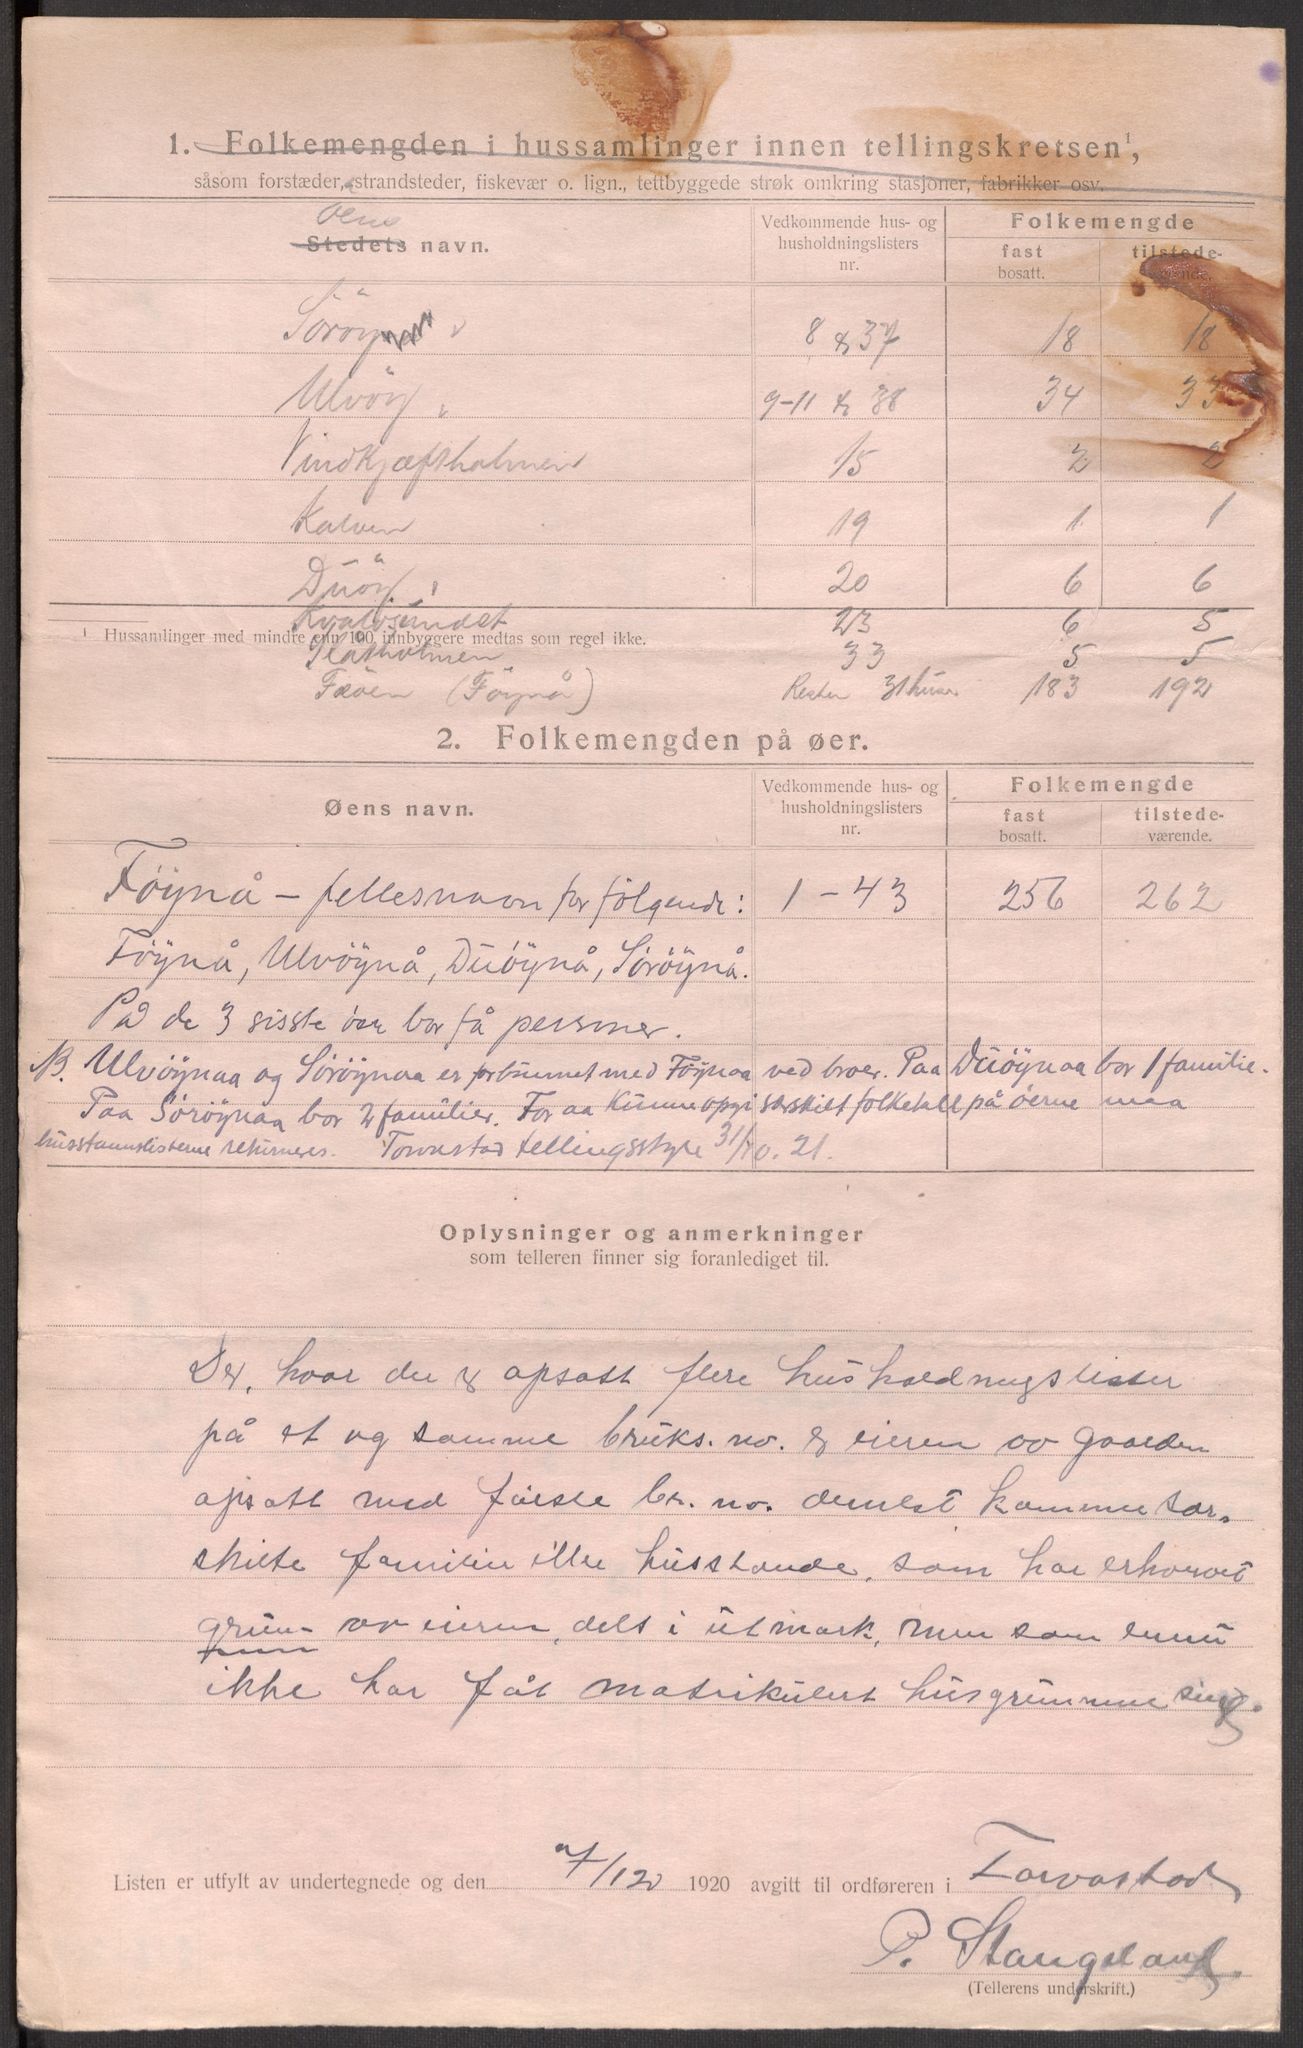 1. Folkemengden i hussamlinger innen tellingskretsen¹,
såsom forstæder, strandsteder, fiskevær o. lign., tettbyggede strøk omkring stasjoner, fabrikker osv.
Øens
Stedets navn.
Vedkommende hus- og husholdningslisters nr.
Folkemengde
fast bosatt.
tilstede-værende.
Söröy 8 & 37 18 18
Ulvöy 9-11 & 38 34 33
Vindkjæftholmen 15 2 2
Kalven 19 1 1
Duöy 20 6 6
Kvalvsundet 23 6 5
¹ Hussamlinger med mindre enn 100 innbyggere medtas som regel ikke.
33 5 5
Føöen (Föynå) Resten 31 huse 183 192
2. Folkemengden på øer.
Øens navn.
Vedkommende hus- og husholdningslisters nr.
Folkemengde
fast bosatt.
tilstede-værende.
Föynå – fellesnavn for følgende: 1 – 43 256 262
Föynå, Ulvöynå, Duöynå, Söröynå.
På de 3 sisste öer bor få personer.
NB. Ulvöynaa og Söröynaa er forbunnet med Föynaa ved broer. Paa Duöynaa bor 1 familie.
Paa Söröynaa bor 2 familier. For aa kunne opgi særskilt folketall på öerne maa
husstannslisterne returneres. Torvastad tellingsstyre 31/10. 21.
Oplysninger og anmerkninger
som telleren finner sig foranlediget til.
Der, hvor der er opsatt flere husholdningslister
på et og samme bruks. no. er eieren av gaarden
opsatt med förste br. no. dernest kommer sær-
skilte familier eller husstande, som har erhvervet
grun- av eieren, dels i utmark, men som ennu
ikke har fåt matrikulert husgrunnene sine.
Listen er utfylt av undertegnede og den 7/12 1920 avgitt til ordføreren i Torvastad
P. Stangeland
(Tellerens underskrift.)